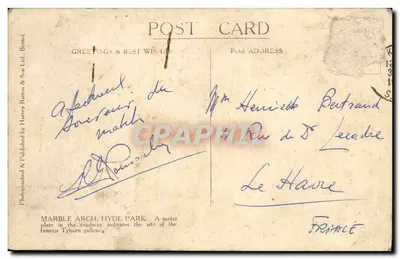 POST CARD
GREETINGS & BEST WISHES
FOR ADDRESS
Affectueux
Souvenir du
matelot
Mme Henriette Bertrand
Rue du Dr Lecadre
Le Havre
FRANCE
MARBLE ARCH: HYDE PARK. A metal
plate in the roadway indicates the site of the
famous Tyburn gallows.
Photographed & Published by Harvey Barton & Son Ltd., Bristol.
CPAPHIL